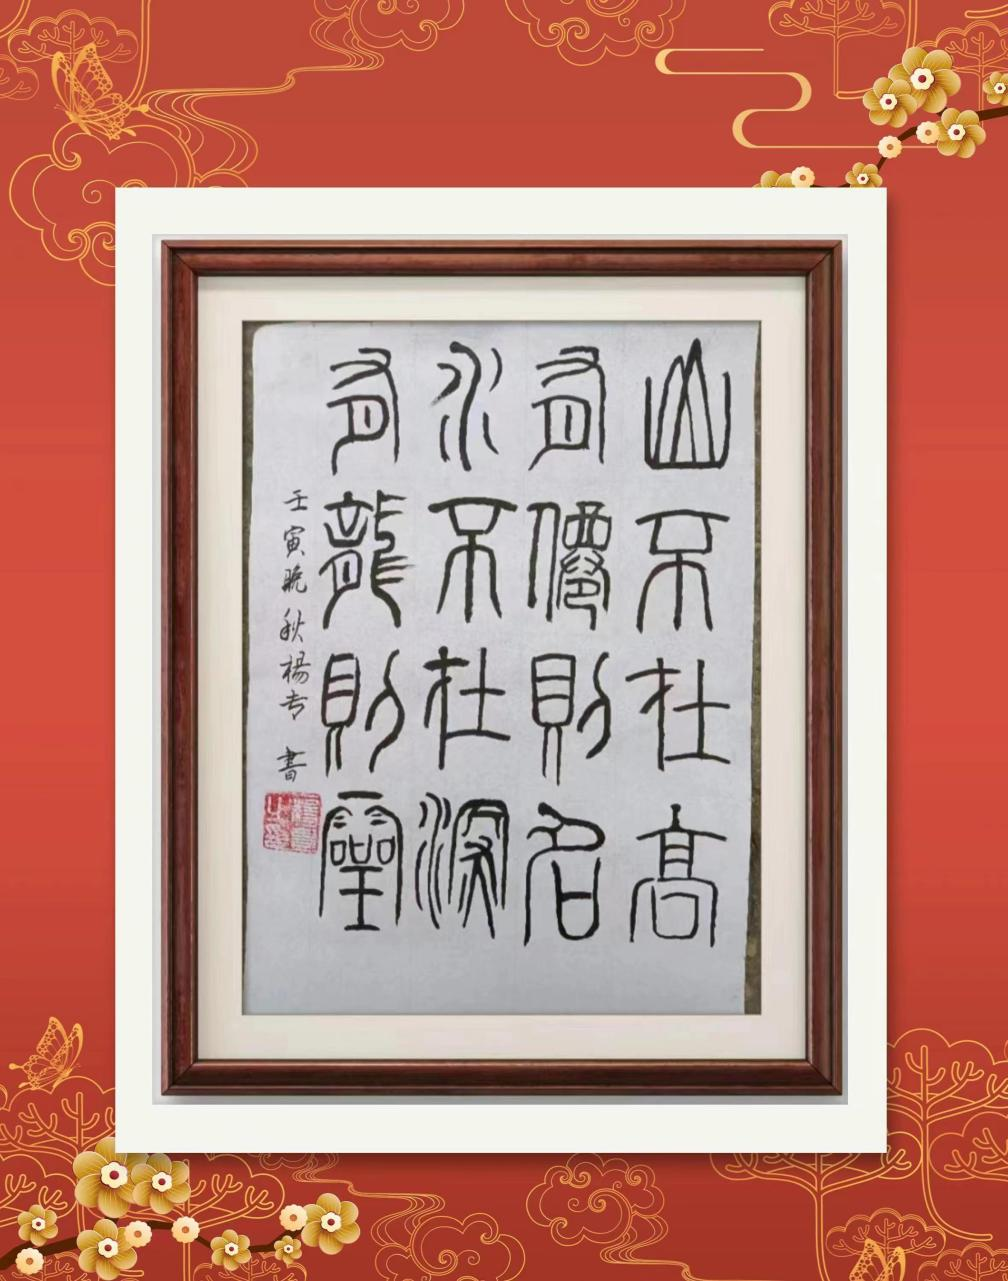 山不在高
有僊則名
水不在深
有龍則靈
壬寅晚秋楊专書